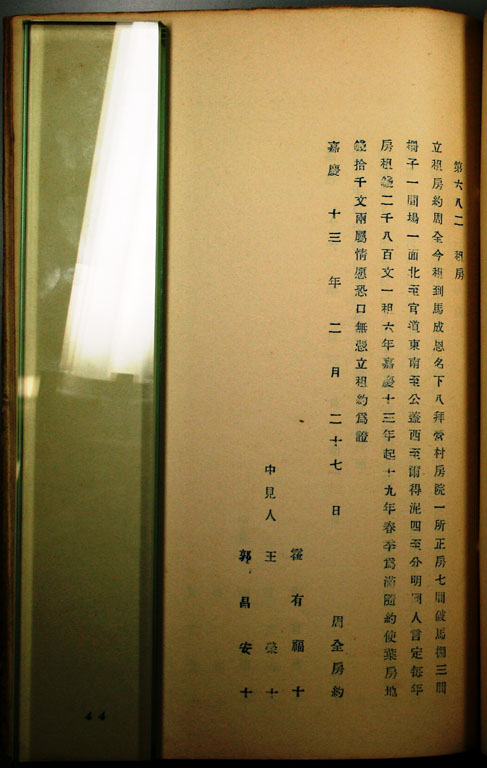 第六八二 租房
立租房約周全今租到馬成恩名下八拜營村房院一所正房七間破馬棚三間
棚子一間場一面北至官道東南至公蓋西至爾得泥四至分明同人言定每年
房租錢二千八百文一租六年嘉慶十三年起十九年春季爲滿隨約使業房地
錢拾千文兩屬情愿恐口無憑立租約爲證
嘉慶十三年二月二十七日 周全房約
霍有福十
中見人 王榮十
郭昌安十
44